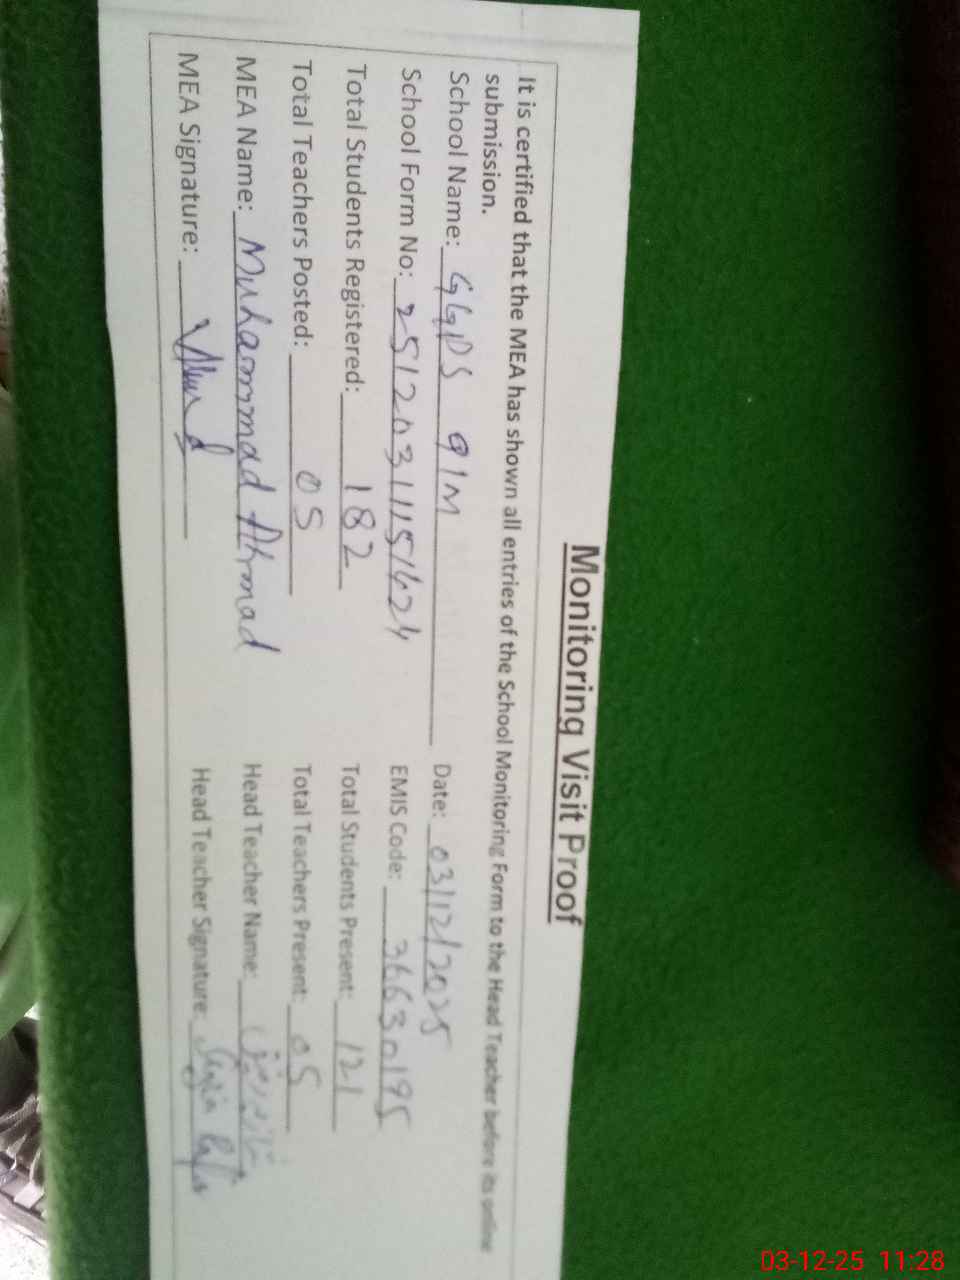 Monitoring Visit Proof
It is certified that the MEA has shown all entries of the School Monitoring Form to the Head Teacher before its online
submission.
School Name: GGPS 91M Date: 03/12/2025
School Form No: 25120311151624 EMIS Code: 36630195
Total Students Registered: 182 Total Students Present: 121
Total Teachers Posted: 05 Total Teachers Present: 05
MEA Name: Muhammad Ahmad Head Teacher Name:
MEA Signature: Head Teacher Signature:
03-12-25 11:28